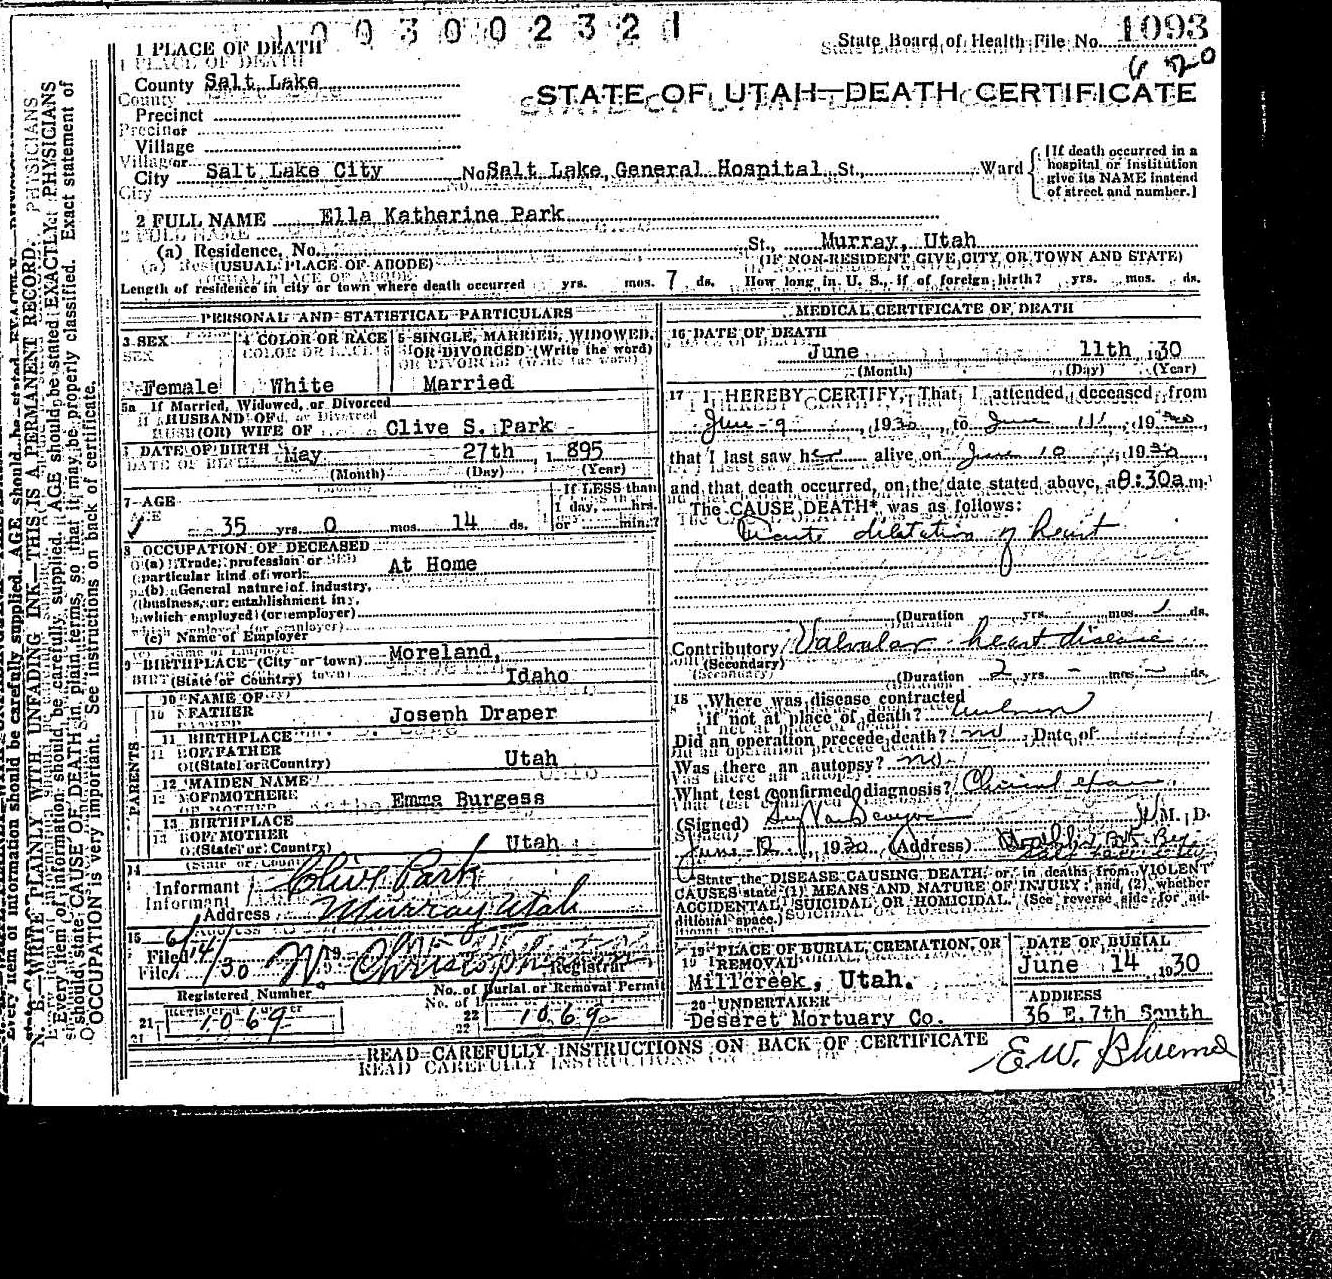 1003002321
State Board of Health File No. 1093
STATE OF UTAH—DEATH CERTIFICATE
1 PLACE OF DEATH
County Salt Lake
Precinct
or
Village
or
City Salt Lake City No. Salt Lake General Hospital St., Ward
[If death occurred in a
hospital or institution
give its NAME instead
of street and number.]
2 FULL NAME Ella Katherine Park
(a) Residence, No. St., Murray, Utah
(USUAL PLACE OF ABODE) (IF NON-RESIDENT GIVE CITY OR TOWN AND STATE)
Length of residence in city or town where death occurred yrs. mos. 7 ds. How long in U. S., if of foreign birth? yrs. mos. ds.
PERSONAL AND STATISTICAL PARTICULARS
3 SEX
Female
4 COLOR OR RACE
White
5 SINGLE, MARRIED, WIDOWED,
OR DIVORCED (Write the word)
Married
5a If Married, Widowed, or Divorced
HUSBAND OF
(OR) WIFE OF Clive S. Park
DATE OF BIRTH May 27th 1895
(Month) (Day) (Year)
7 AGE
35 yrs. 0 mos. 14 ds.
If LESS than
1 day, hrs.
or min.?
8 OCCUPATION OF DECEASED
(a) Trade, profession or
particular kind of work At Home
(b) General nature of industry,
business, or establishment in
which employed (or employer)
(c) Name of Employer
9 BIRTHPLACE (City or town) Moreland,
(State or Country) Idaho
PARENTS
10 NAME OF
FATHER Joseph Draper
11 BIRTHPLACE
OF FATHER
(State or Country) Utah
12 MAIDEN NAME
OF MOTHER Emma Burgess
13 BIRTHPLACE
OF MOTHER
(State or Country) Utah
14
Informant Clive Park
Address Murray Utah
15
Filed 6/14/30 Registrar
Registered Number
21 1069
No. of Burial or Removal Permit
22 1069
MEDICAL CERTIFICATE OF DEATH
16 DATE OF DEATH
June 11th 1930
(Month) (Day) (Year)
17 I HEREBY CERTIFY, That I attended deceased from
June 9, 1930, to June 11, 1930
that I last saw her alive on June 10, 1930
and that death occurred, on the date stated above, at 8:30a m.
The CAUSE DEATH* was as follows:
Acute dilatation of heart
(Duration yrs. - mos. 1 ds.
Contributory Valvular heart disease
(Secondary)
(Duration 2 yrs. - mos. - ds.
18 Where was disease contracted
if not at place of death? unknown
Did an operation precede death? no Date of
Was there an autopsy? no
What test confirmed diagnosis? Clinical exam
(Signed) M. D.
June 12, 1930 (Address)
*State the DISEASE CAUSING DEATH, or, in deaths from VIOLENT
CAUSES state (1) MEANS AND NATURE OF INJURY; and (2) whether
ACCIDENTAL, SUICIDAL OR HOMICIDAL. (See reverse side for ad-
ditional space.)
19 PLACE OF BURIAL, CREMATION, OR
REMOVAL
Millcreek, Utah.
DATE OF BURIAL
June 14 1930
20 UNDERTAKER
Deseret Mortuary Co.
ADDRESS
36 E. 7th South
READ CAREFULLY INSTRUCTIONS ON BACK OF CERTIFICATE
N. B.—WRITE PLAINLY WITH UNFADING INK—THIS IS A PERMANENT RECORD.
Every item of information should be carefully supplied. AGE should be stated EXACTLY. PHYSICIANS
should state CAUSE OF DEATH in plain terms, so that it may be properly classified. Exact statement of
OCCUPATION is very important. See instructions on back of certificate.